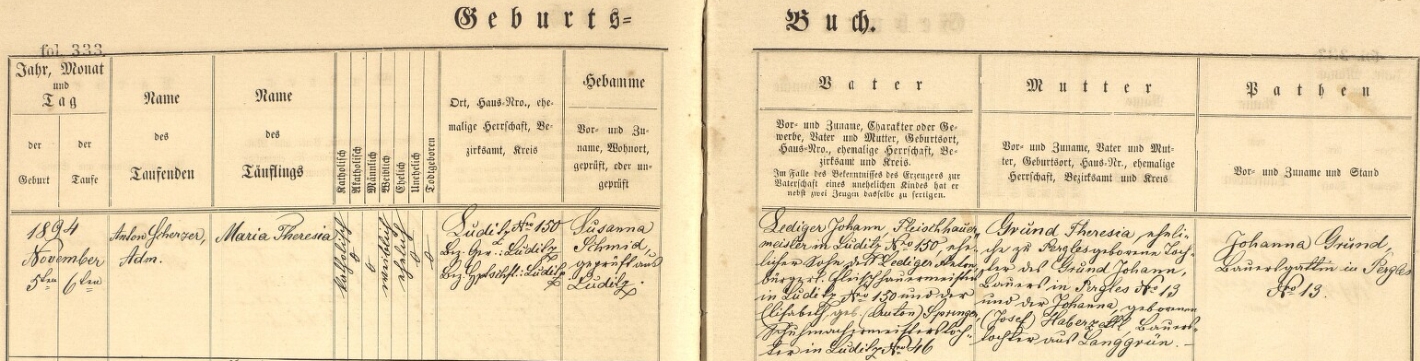 Geburts-
Buch.
fol. 333.
Jahr, Monat
und
Tag
der
Geburt
der
Taufe
Name
des
Taufenden
Name
des
Täuflings
Katholisch
Akatholisch
Männlich
Weiblich
Ehelich
Unehelich
Todtgeboren
Ort, Haus-Nro., ehe-
malige Herrschaft, Be-
zirksamt, Kreis
Hebamme
Vor- und Zu-
name, Wohnort,
geprüft, oder un-
geprüft
Vater
Vor- und Zuname, Charakter oder Ge-
werbe, Vater und Mutter, Geburtsort,
Haus-Nro., ehemalige Herrschaft, Be-
zirksamt und Kreis.
Im Falle des Bekenntnisses des Erzeugers zur
Vaterschaft eines unehelichen Kindes hat er
nebst zwei Zeugen dasselbe zu fertigen.
Mutter
Vor- und Zuname, Vater und Mut-
ter, Geburtsort, Haus-Nr., ehemalige
Herrschaft, Bezirksamt und Kreis
Pathen
Vor- und Zuname und Stand
1894
November
5ten 6ten
Anton Scherzer,
Adm.
Maria Theresia
katholisch
0
0
weiblich
ehelich
0
0
Luditz Nro 150
Bez. Ger.: Luditz
Bez. Hptschft.: Luditz
Susanna
Schmid,
geprüft aus
Luditz.
Lediger Johann, Fleischhauer-
meister in Luditz Nro 150, ehe-
licher Sohn des Lediger Anton
bürgerl. Fleischhauermeisters
in Luditz Nro 150 und der
Elisabeth, geb. (Anton) Springer,
Schuhmachermeisterstoch-
ter in Luditz Nro 46
Grund Theresia, eheli-
che zu Pergles geborene Toch-
ter des Grund Johann,
Bauers in Pergles No 13
und der Johanna, geborenen
(Josef) Haberzettl, Bauers-
tochter aus Langgrün.
Johanna Grund,
Bauersgattin in Pergles
No 13.